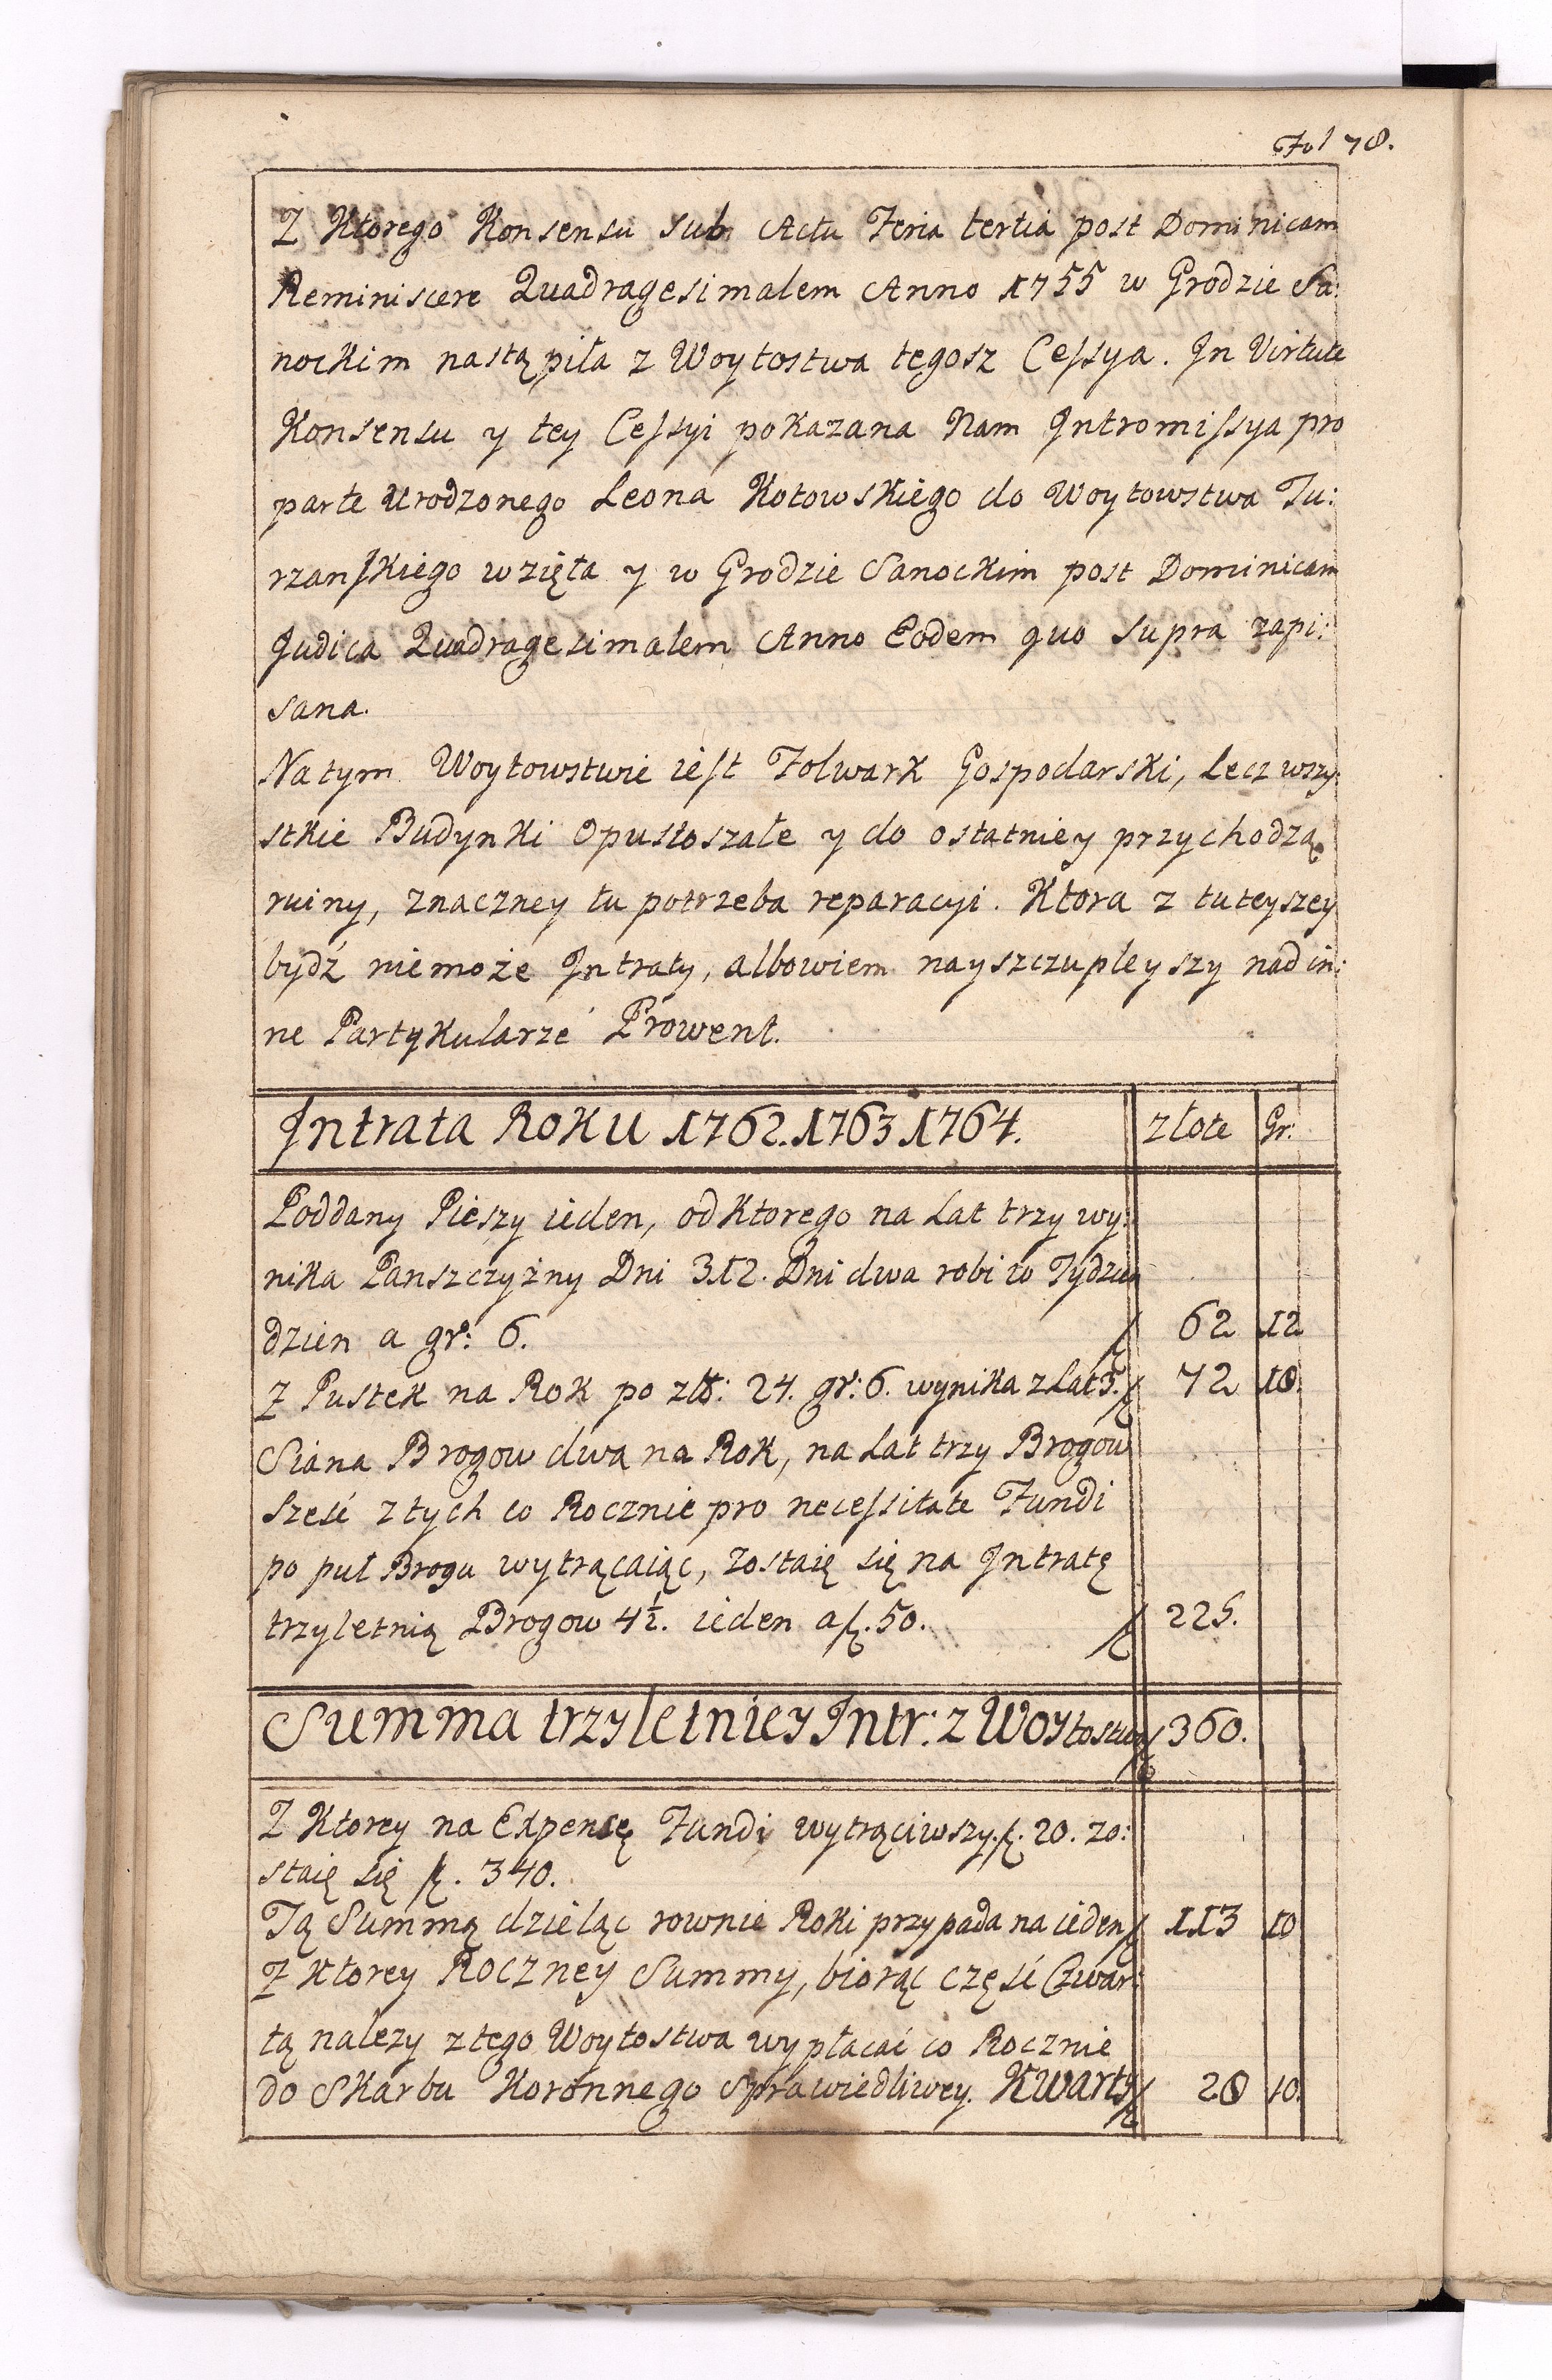 Fol 78.
Z Ktorego Konsensu sub Actu Feria tertia post Dominicam
Reminiscere Quadragesimalem Anno 1755 w Grodzie Sa:
nockim nastąpiła z Woytostwa tegosz Cessya. In Virtute
Konsensu y tey Cessyi pokazana Nam Intromissya pro
parte Urodzonego Leona Kotowskiego do Woytowstwa Tu:
rzanskiego wzięta y w Grodzie Sanockim post Dominicam
Judica Quadragesimalem Anno Eodem quo supra zapi:
sana.
Na tym Woytowstwie iest Folwark Gospodarski, Lecz wszy:
stkie Budynki Opustoszałe y do ostatniey przychodzą
ruiny, znaczney tu potrzeba reparacyi. Ktora z tuteyszey
bydź niemoże Intraty, albowiem nayszczupleyszy nad in:
ne Partykularze Prowent.
Intrata Roku 1762. 1763 1764. złote Gr:
Poddany Pieszy ieden, od Ktorego na Lat trzy wy:
nika Panszczyzny Dni 312. Dni dwa robi w Tydzień
dzien a gr: 6. 62 12
Z Pustek na Rok po zł: 24. gr: 6. wynika z Lat 3. 72 18.
Siana Brogow dwa na Rok, na Lat trzy Brogow
sześć z tych co Rocznie pro necessitate Fundi
po puł Brogu wytrącaiąc, zostaię się na Intratę
trzyletnią Brogow 4½. ieden a f. 50. 225.
Summa trzyletniey Intr: z Woytostwa 360.
Z Ktorey na Expensę Fundi wytrąciwszy f. 20. zo:
staię się f. 340.
Tą Summą dzieląc rownie Roki przypada na ieden 113 10
Z Ktorey Roczney Summy, biorąc część Czwar:
tą nalezy z tego Woytostwa wypłacać co Rocznie
do Skarbu Koronnego Sprawiedliwey Kwarty 28 10.